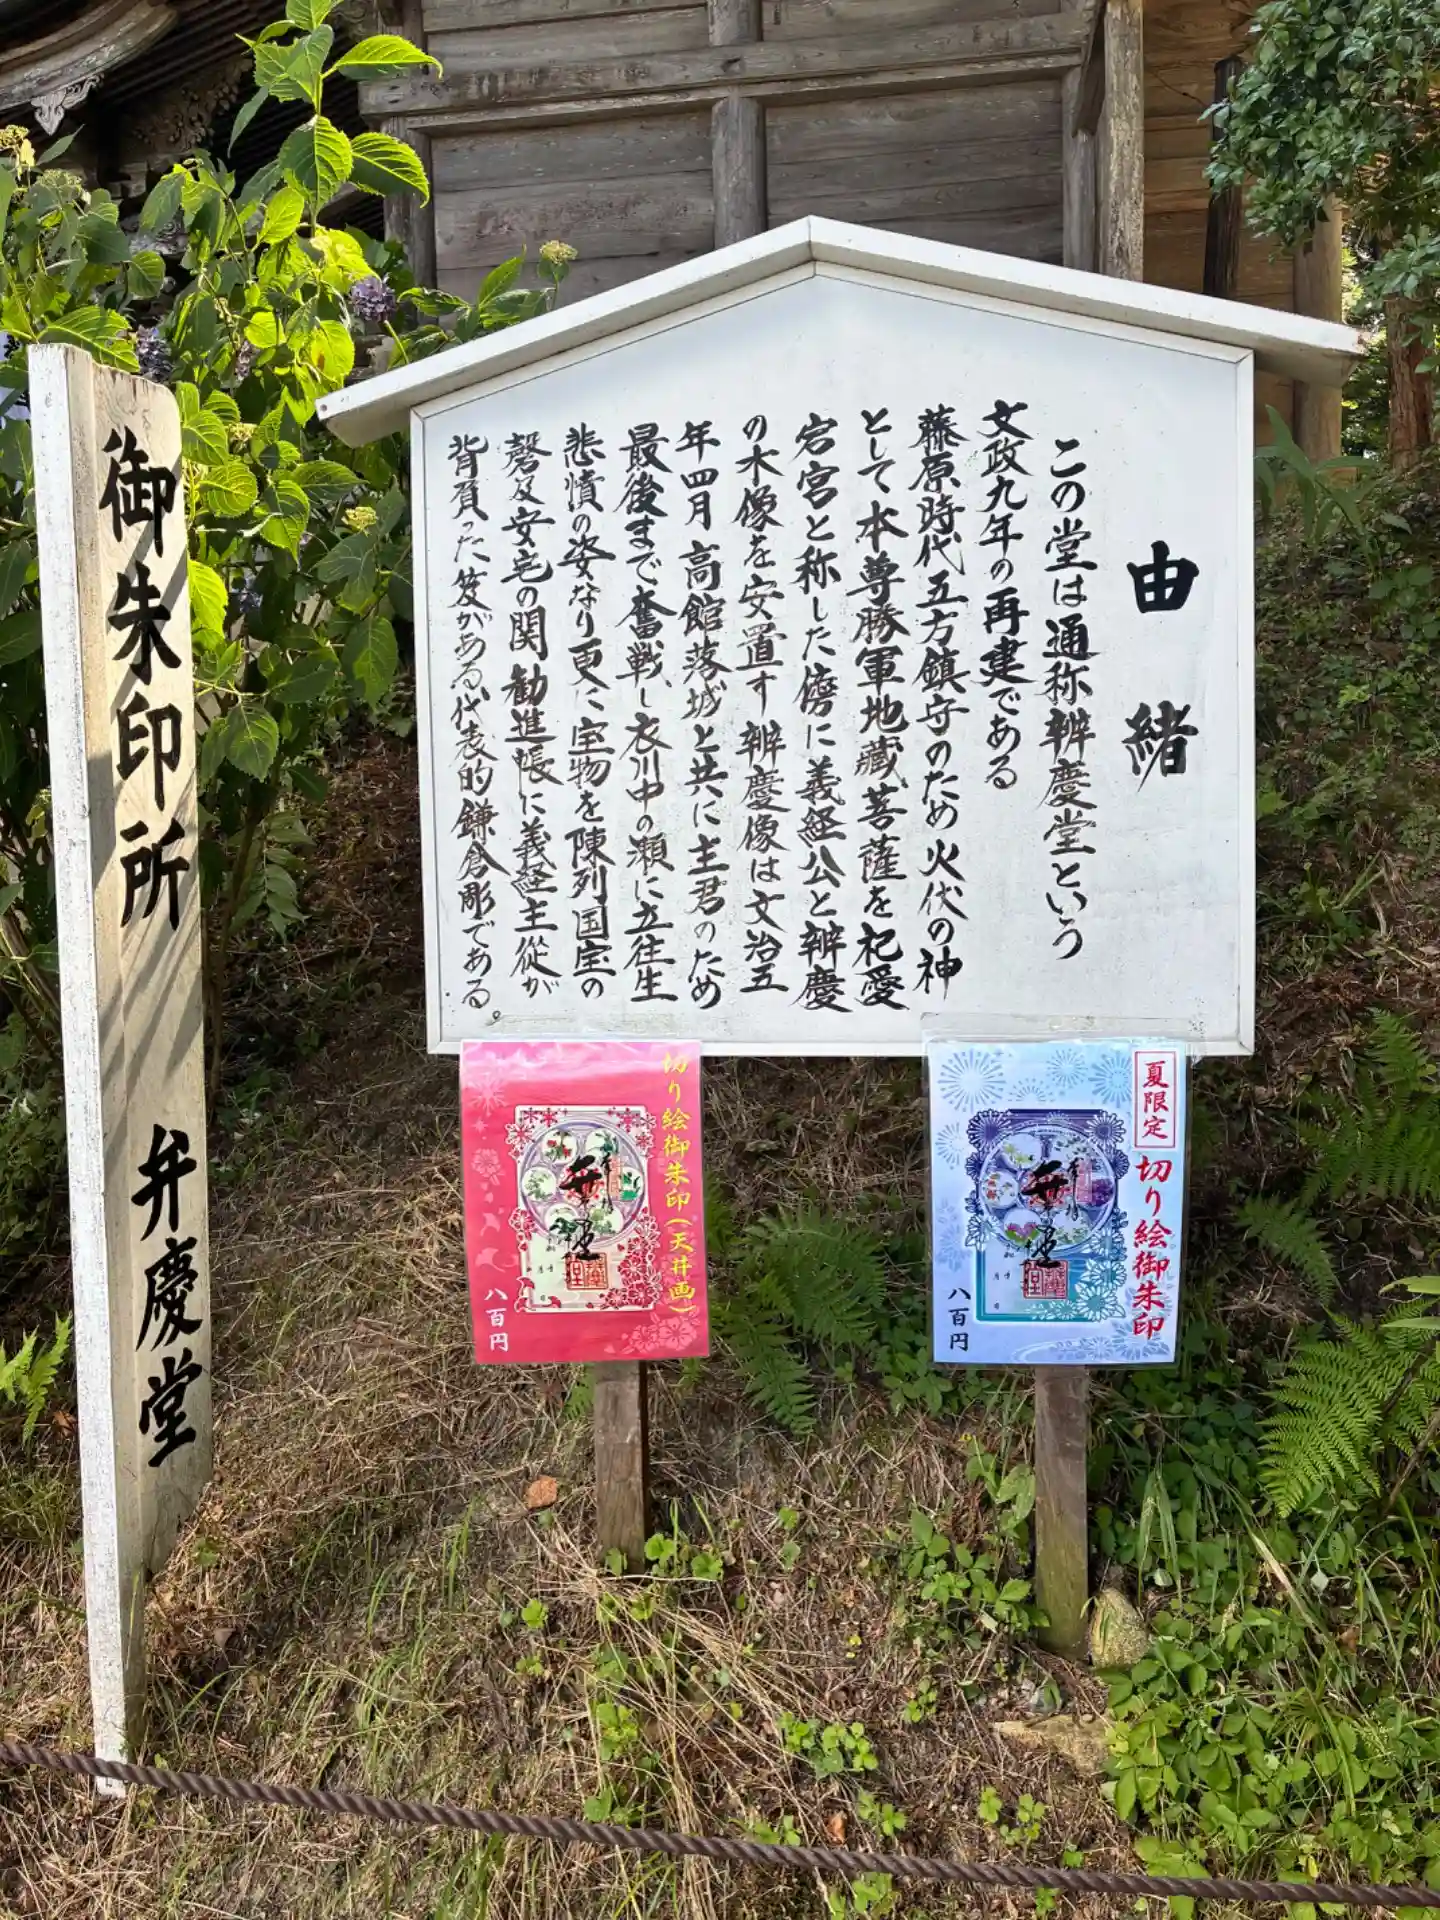 由緒
この堂は通称辨慶堂という
文政九年の再建である
藤原時代五方鎮守のため火伏の神
として本尊勝軍地蔵菩薩を祀愛
宕宮と称した傍に義経公と辨慶
の木像を安置す辨慶像は文治五
年四月高館落城と共に主君のため
最後まで奮戦し衣川中の瀬に立往生
悲憤の姿なり更に宝物を陳列国宝の
磬及安宅の関勧進帳に義経主從が
背負った笈がある代表的鎌倉彫である。
御朱印所 弁慶堂
夏限定
切り絵御朱印
八百円
切り絵御朱印(天井画)
八百円